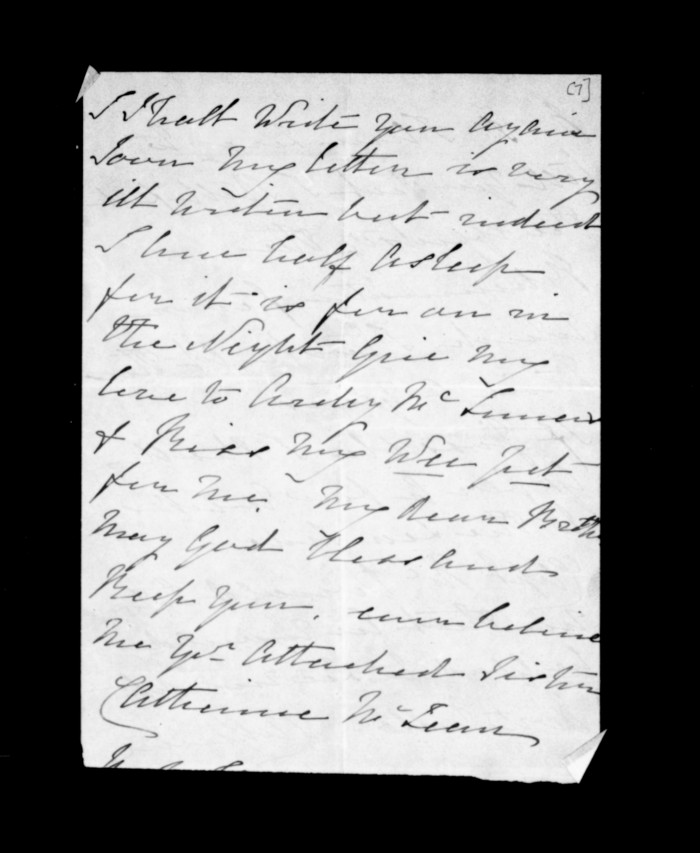 [7]
I Shall Write you again
Soon My letter is very
ill Writen but indeed
I half asleep
for it is far on in
the Night Give My
love to Archy Mc
& Kiss My Wee pet
for me My Dear Broth
May God bless and
Keep you, ever believe
Me Yr Attached Sister
Catherine McLean